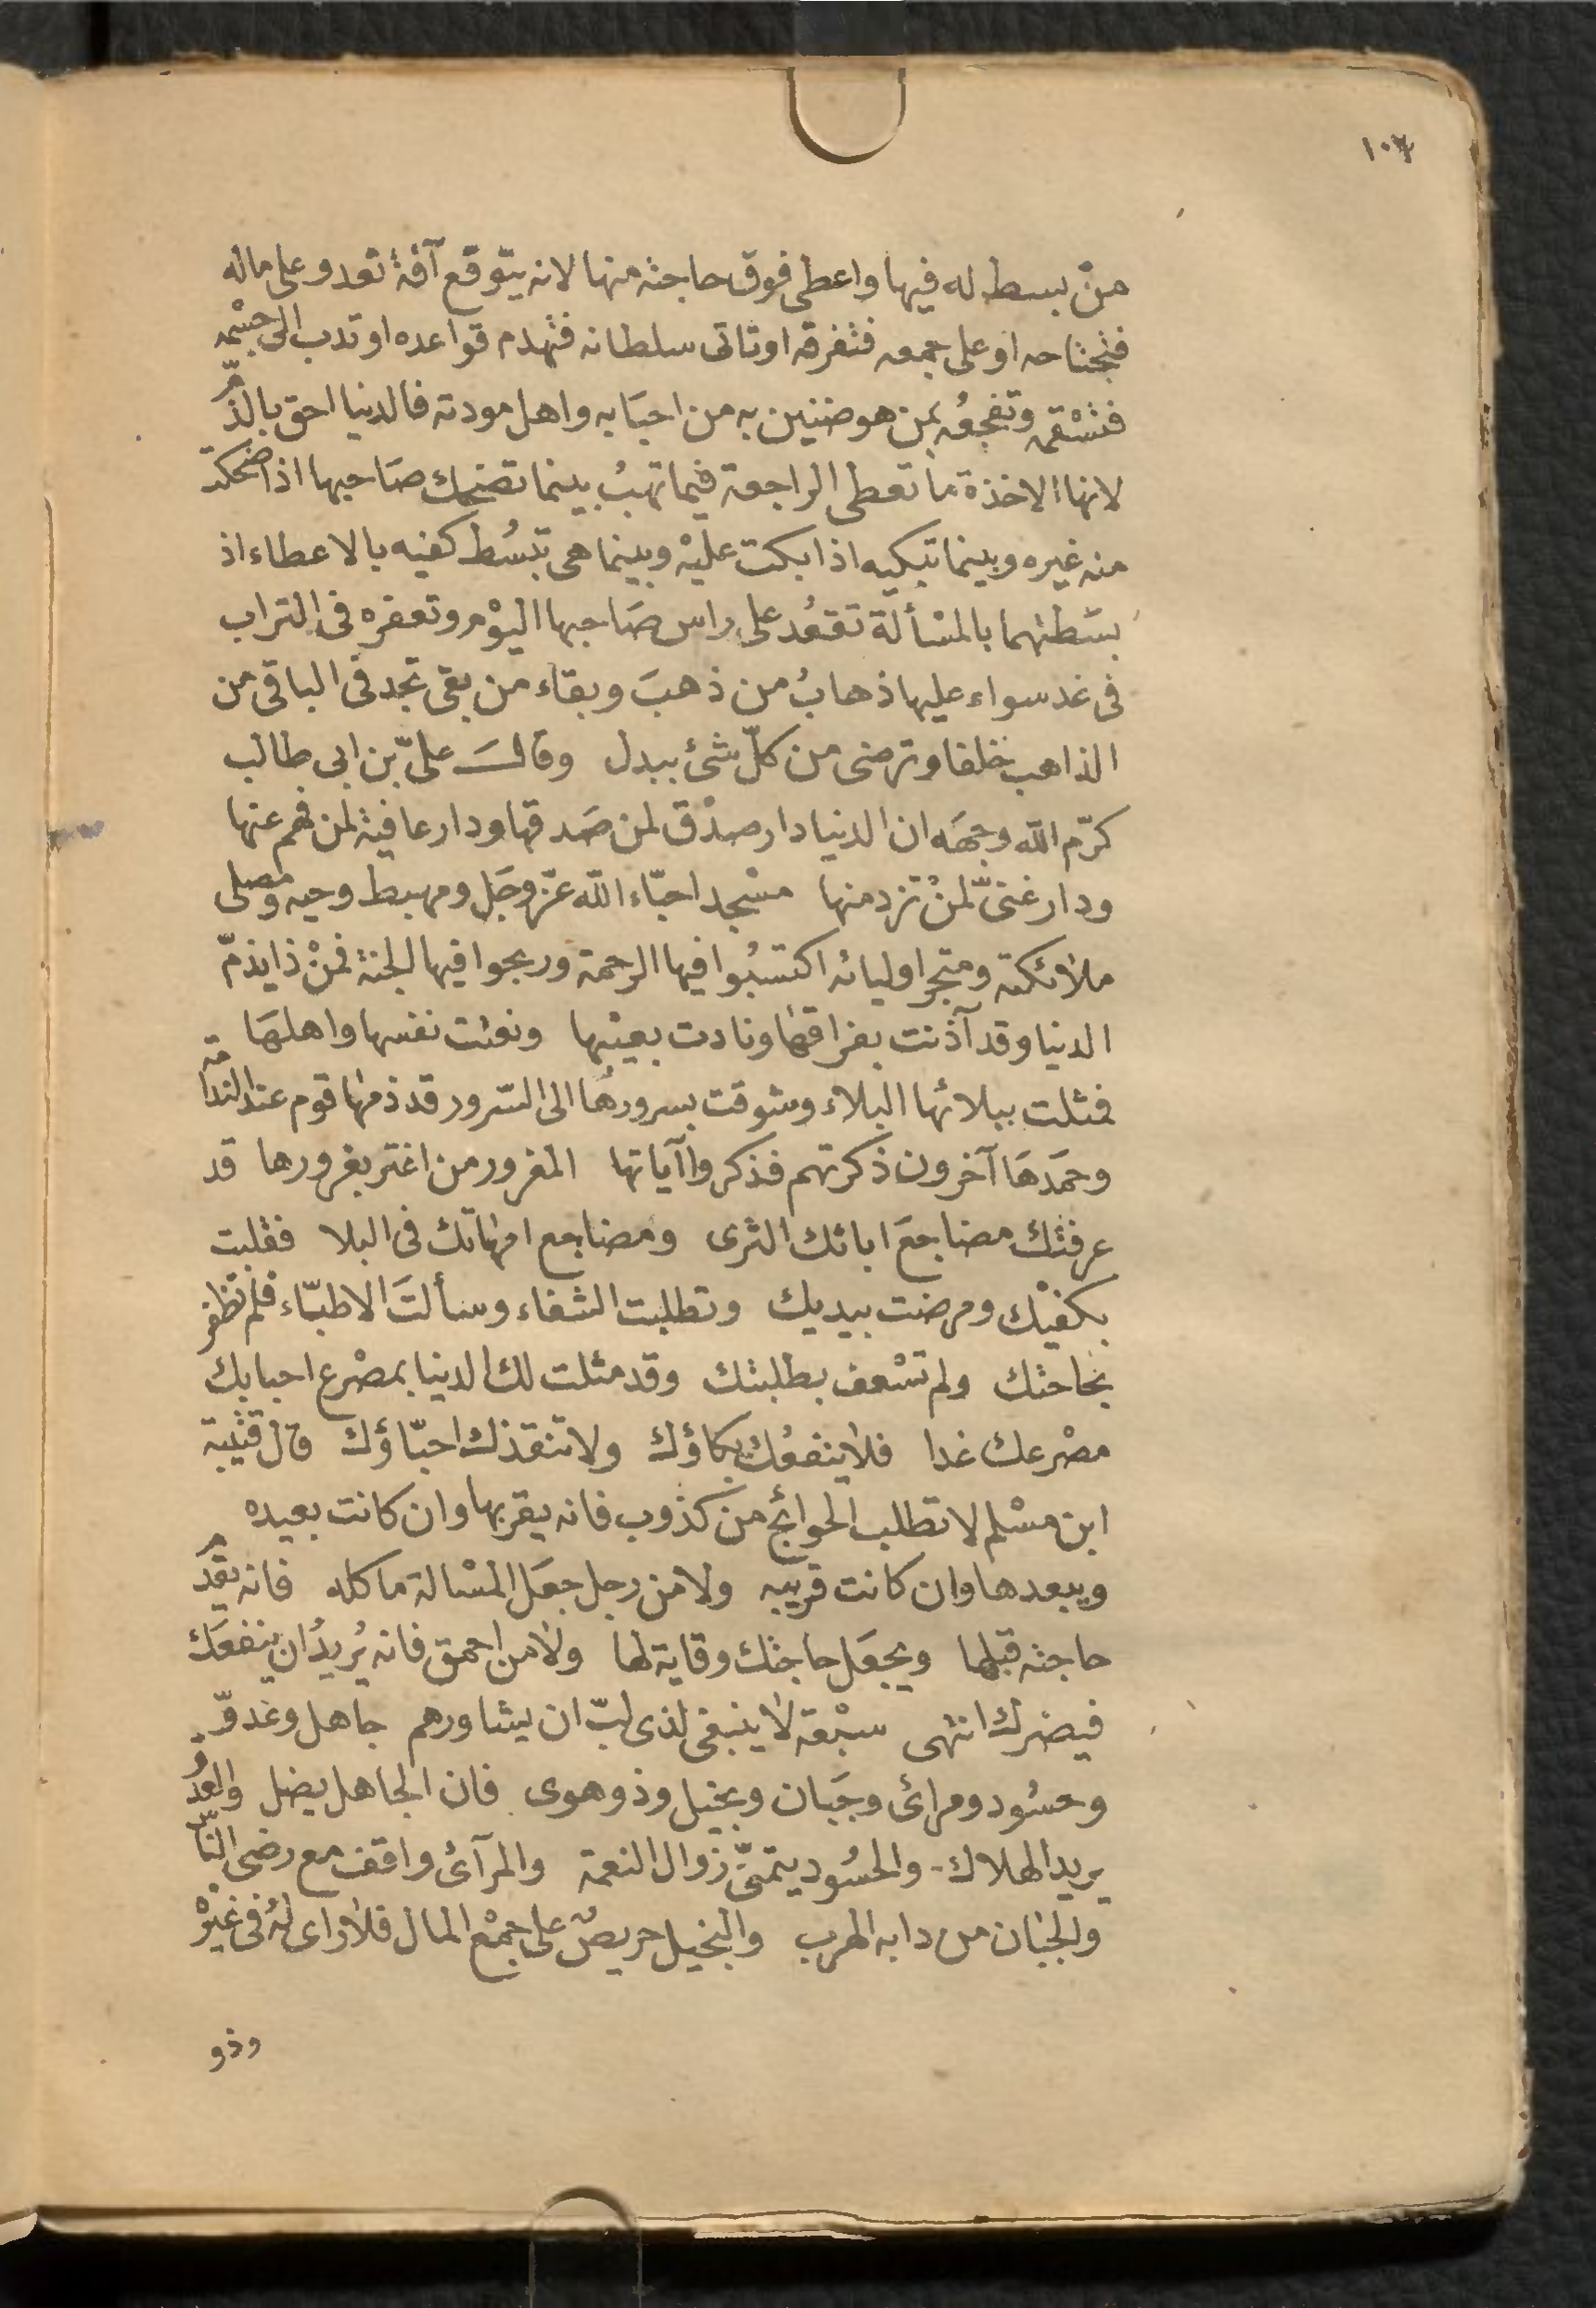 ١٠٣
منْ بسط له فيها واعطى فوق حاجته منها لانه يتوقع آفة تعدو على ماله
فتجتاحه او على جمعه فتفرقه او تاتى سلطانه فتهدم قواعده او تدب الى جسْمه
فتسْقمه وتفجعُه بمن هو ضنين به من احبَابه واهل مودته فالدنيا احق بالذّم
لانها الاخذة ما تعطى الراجعة فيما تهبُ بينما تضحك صَاحبها اذا ضحكت
منه غيره وبينما تبكيه اذا بكت عليْه وبينما هى تبسُط كفيه بالاعطاء اذ
بسَطتهما بالمسْألة تقعُد على راس صَاحبها اليوْم وتعفره فى التراب
فى غد سواء عليها ذهابُ من ذهبَ وبقاء من بقى تجد فى الباقى من
الذاهب خلفا وترضى من كلّ شئ ببدل وقالـَ علىّ بن ابى طالب
كرّم الله وجهَه ان الدنيا دار صدْق لمن صَدقها ودار عافية لمن فهم عنها
ودار غنىّ لمنْ تزد منها مسْجد احبّاء الله عزّ وجَل ومهبط وحيه ومصلى
ملائكته ومتجر اوليائه اكتسَبُوا فيها الرحمة وربحوا فيها الجنة فمنْ ذا يذمّ
الدنيا وقد آذنت بفراقهَا ونادت بعيْبها ونعت نفسها واهلهَا
فمثلت ببلائها البلاء وشوقت بسرورهَا الى السّرور قد ذمهَا قوم عند الندامة
وحمَدهَا آخرون ذكرتهم فذكروا آياتها المغرور من اغتر بغرورها قد
عرفتك مضاجعَ ابائك الثرى ومضاجع امهاتك فى البلا فقلبت
بكفيْك ومرضت بيديك وتطلبت الشفاء وسألتَ الاطبّاء فلم تظفر
بحَاجتك ولم تسْعف بطلبتك وقد مثلت لك الدنيا بمصْرع احبابك
مصْرعك غدا فلا ينفعُك بكاؤك ولا تنقذك احبّاؤك قال قتيبة
ابن مسْلم لا تطلب الحوائج من كذوب فانه يقربها وان كانت بعيده
ويبعدها وان كانت قريبه ولا من رجل جعَل المسْالة ماكله فانه يقدّم
حاجته قبلها ويجعَل حاجتك وقاية لها ولا من احمق فانه يُريدُ ان ينفعَك
فيضرك انتهى سبْعة لا ينبغى لذى لبّ ان يشاورهم جاهل وعدوّ
وحسُود ومرائ وجَبان وبخيل وذو هوى فان الجاهل يضل والعدُو
يريد الهلاك والحسُود يتمنىّ زوال النعمة والمرآئُ واقف مع رضى النّاس
والجبان من دابه الهرب والبخيل حريصٌ على جمْع المال فلا راى لهُ فى غيْره
وذو